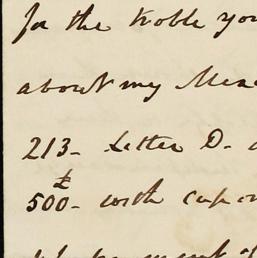 for the troble you
about my Mem
213- Letter D.
£
500- with cupon